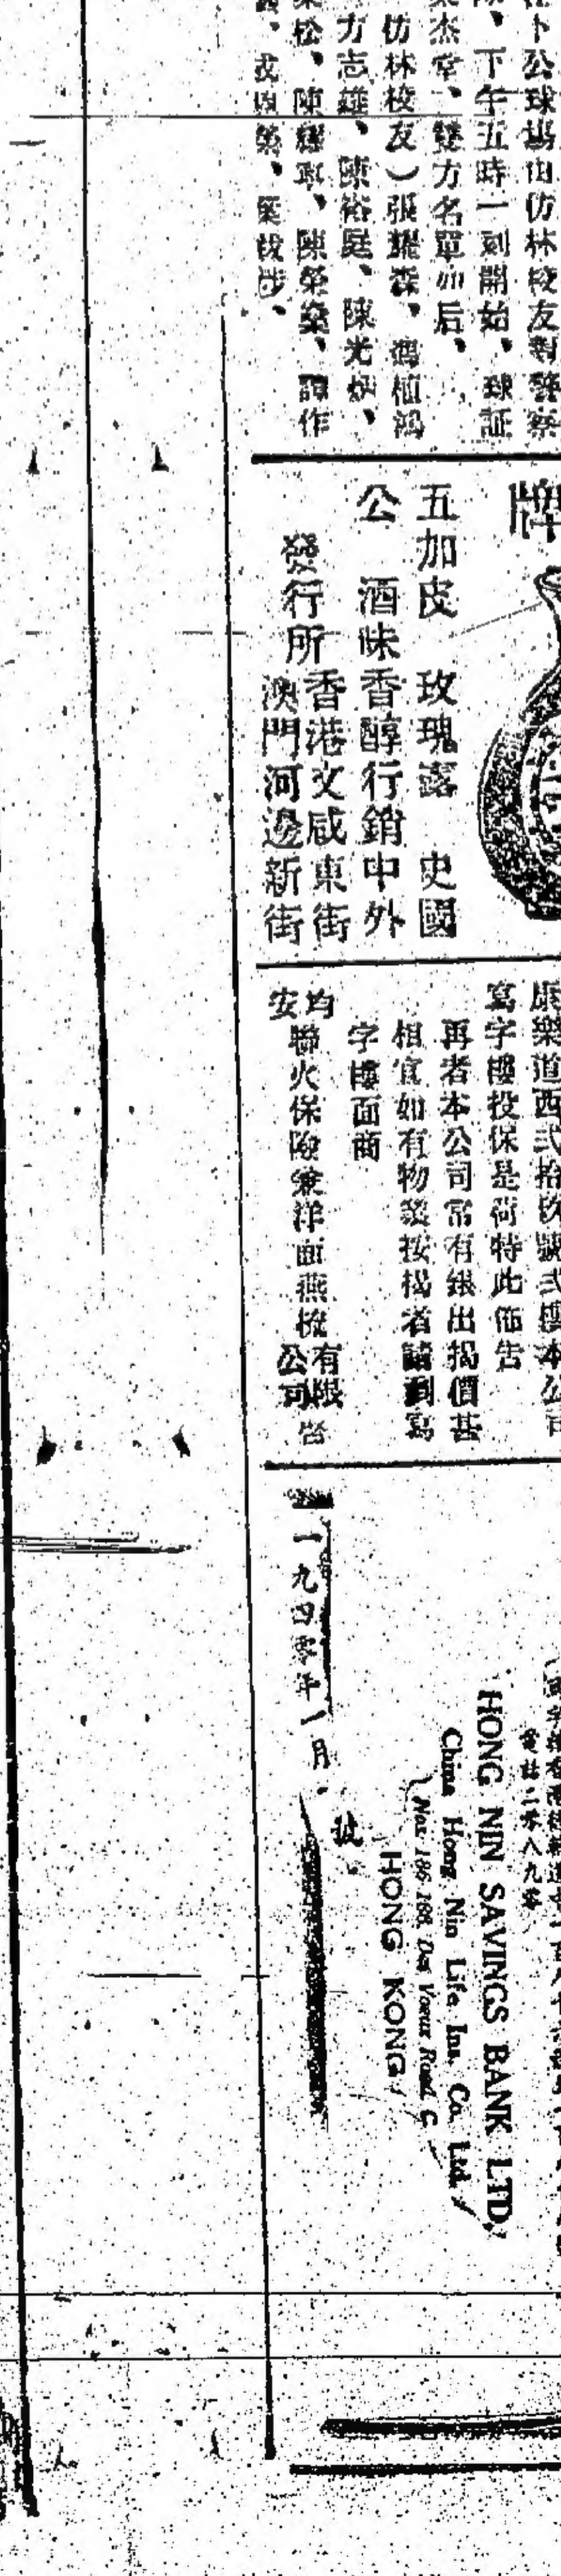 卜公球場由仿林校友對警察
下午五時一刻開始、球証
杰堂、雙方名單如后、
仿林校友)張耀森、馮植鴻
方志雄、陳裕庭、陳光炳、
松、陳耀 、陳榮燊、譚作
牌
五加皮 玫瑰露 史國
公 酒味香醇行銷中外
發行所
香港文咸東街
澳門河邊新街
康樂道西弍拾玖號弍樓本公司
寫字樓投保是荷特此佈告
再者本公司常有銀出揭價甚
相宜如有物業按揭者請到寫
字樓面商
均安
聯火保險兼洋面燕梳
有限公司啓
電話二零八九零
HONG NIN SAVINGS BANK LTD.
China Hong Nin Life Ins. Co. Ltd.
Nos. 186-188, Des Voeux Road C.
HONG KONG
一九四零年一月 號